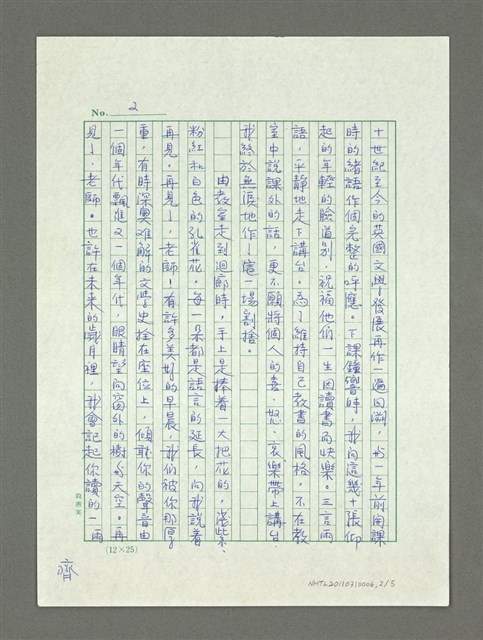 No. 2
十世紀至今的英國文學發展再作一遍回溯，與一年前開課
時的緒語作個完整的呼應。下課鐘響時，我向這幾十張仰
起的年輕的臉道別，祝福他們一生因讀書而快樂。三言兩
語，平靜地走下講台。為了維持自己教書的風格，不在教
室中說課外的話，更不願將個人的喜、怒、哀樂帶上講台，
我終於無淚地作了這一場割捨。
由教室走到迴廊時，手上是捧着一大把花的，淺紫、
粉紅和白色的孔雀花。每一朵都是語言的延長，向我說着
再見。再見了，老師！有許多美好的早晨，我們被你那厚
重，有時深奧難解的文學史拴在座位上，傾聽你的聲音由
一個年代飄進又一個年代，眼睛望向窗外的樹和天空。再
見了，老師。也許在未來的歲月裡，我會記起你讀的一兩
(12×25)
齊
NMTL20110310006,2/5